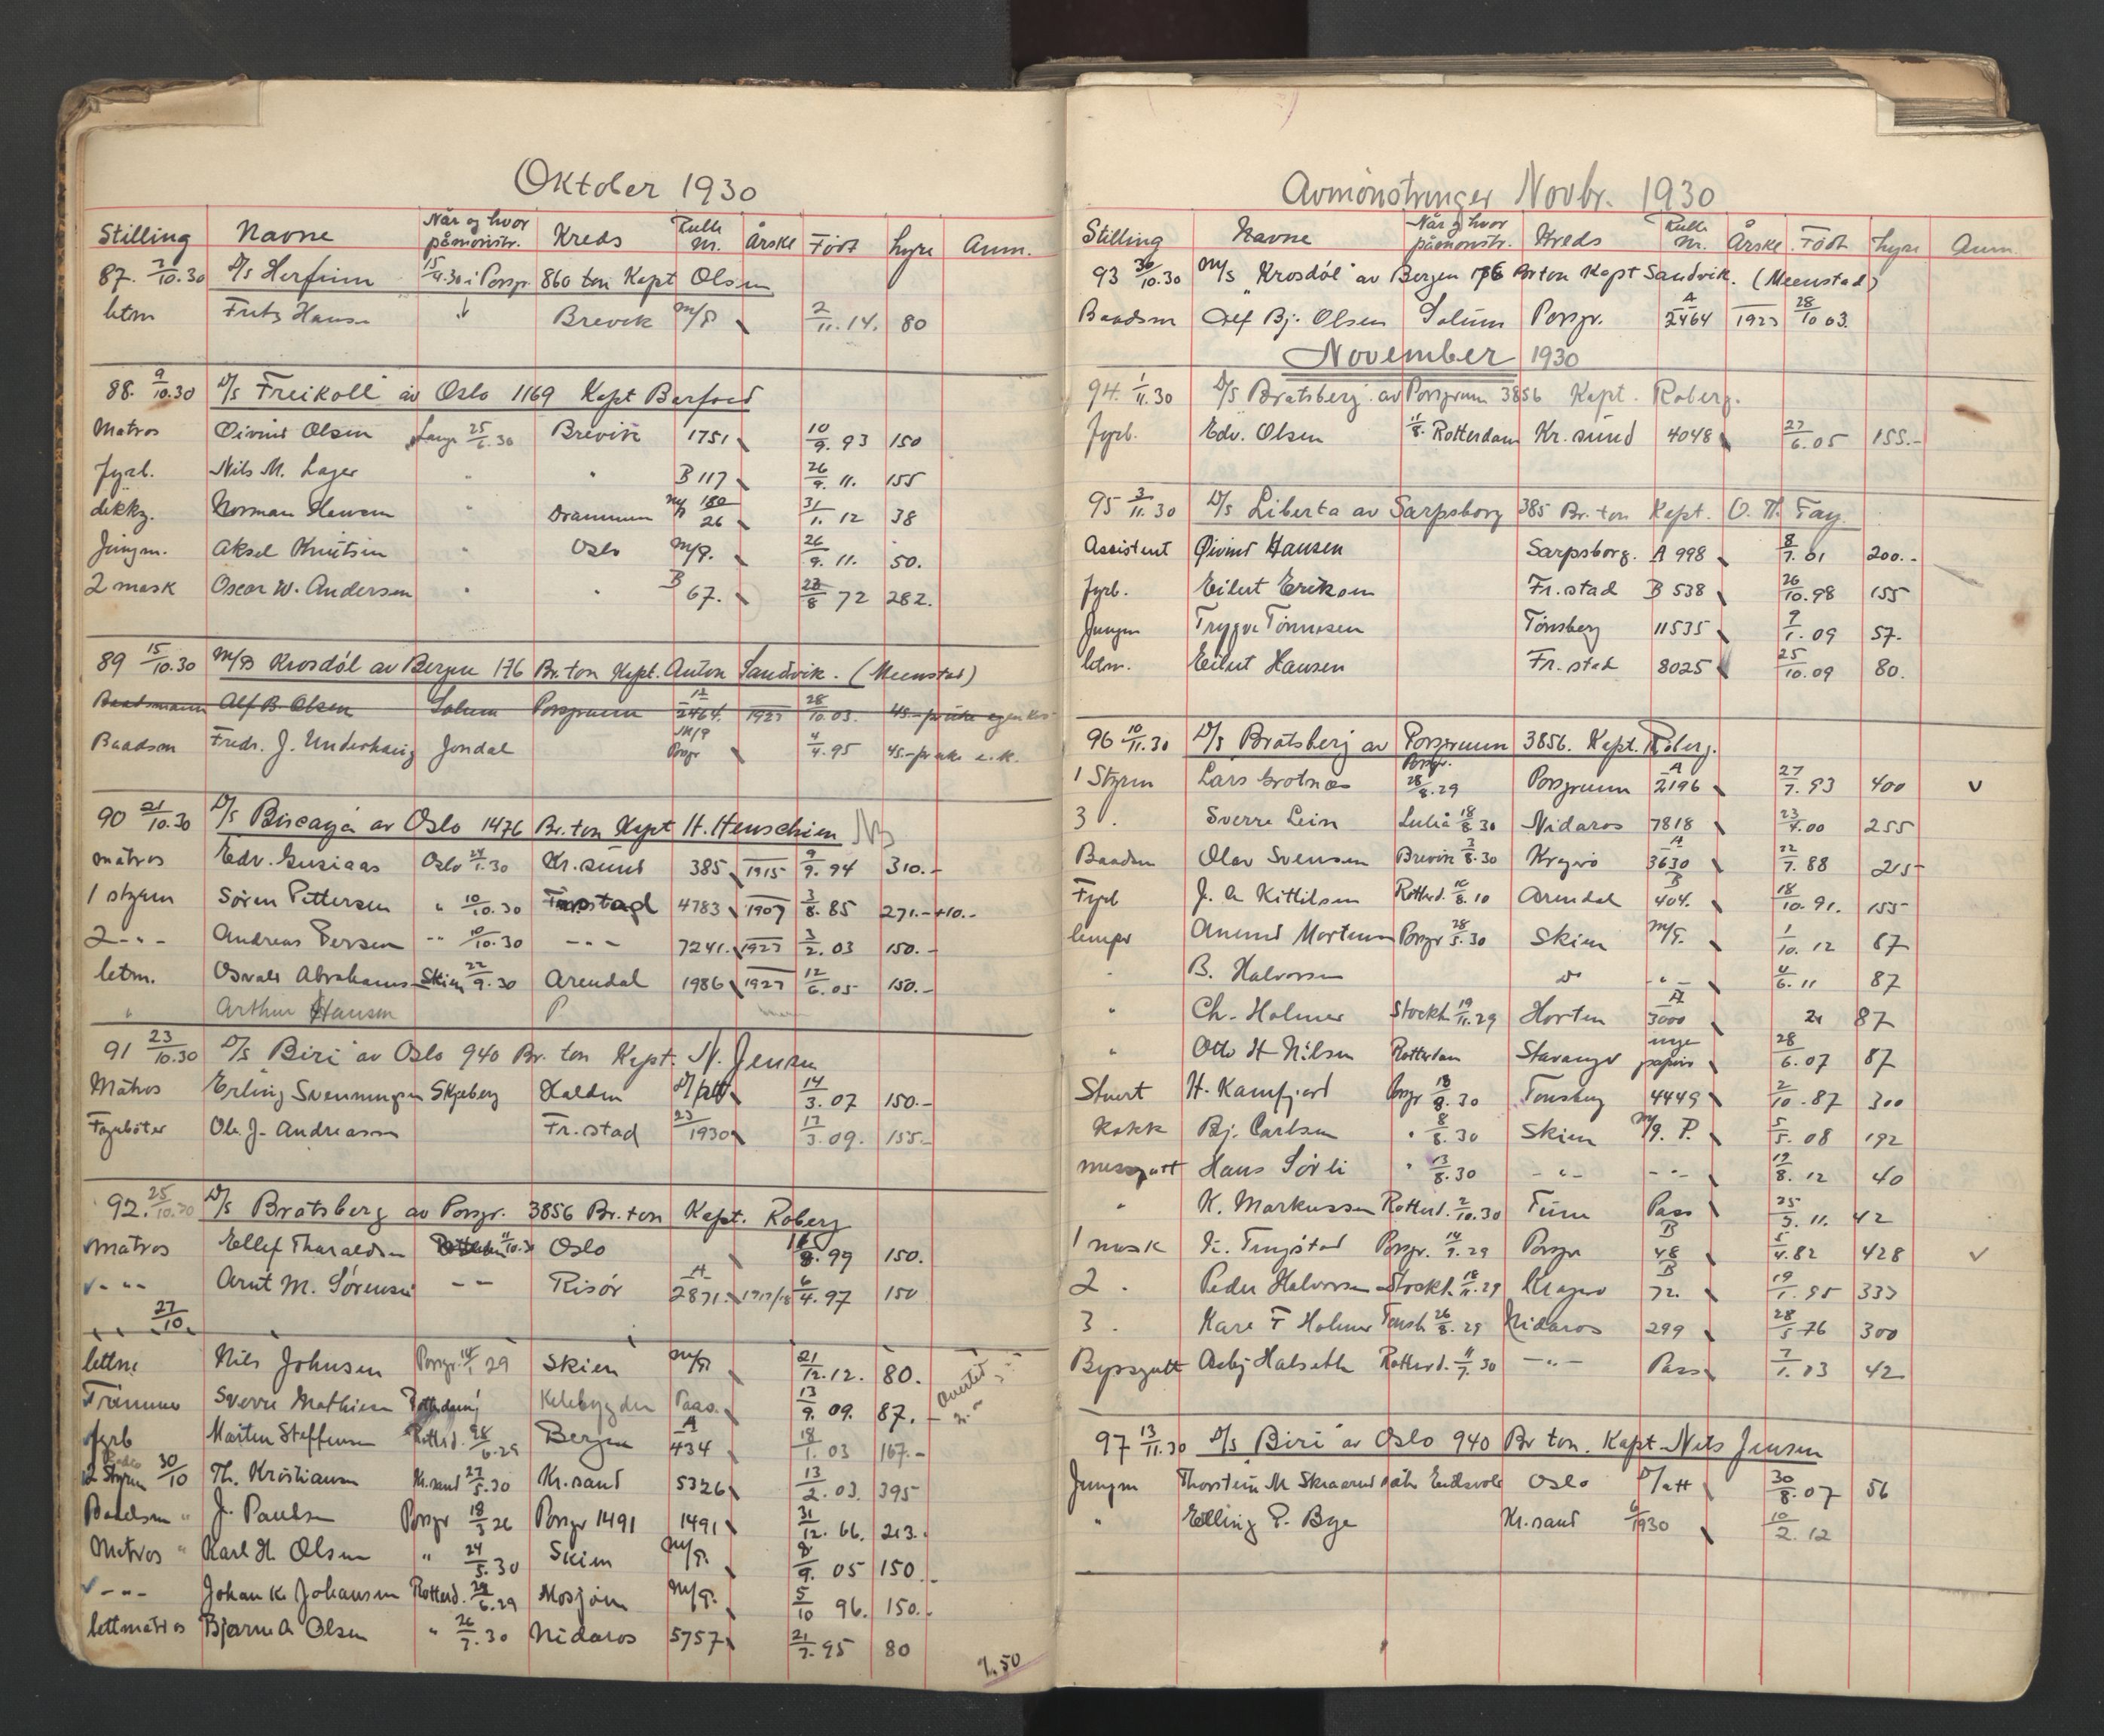 Oktober 1930
Stilling Navne Når og hvor påmönstr. Kreds Rulle nr. Årskl Født Hyre Anm.
87. 2/10.30 D/s Herfinn 15/4.30 i Porsgr 860 ton Kapt Olsen
letm Frits Hansen Brevik M/P 2/11.14. 80
88. 9/10.30 D/s "Freikoll" av Oslo 1169 Kapt Barfoed
Matros Öivind Olsen 25/6.30 Brevik 1751 10/9.93 150
fyrb. Nils M. Lager " " B 117 26/9.11. 155
dekkg. Norman " Drammen 180/26 31/1.12 38
Jungm. Aksel Knutsen " Oslo M/P. 26/9.11. 50.
2 mask Oscar W. Andersen " " B 67. 28/8 72 282.
89 15/10.30 M/S Krosdöl av Bergen 176 Br. ton Kapt. Anton Sandvik. (Meenstad)
Baadsmann Alf B. Olsen Solum Porsgrunn A 2464. 1923 28/10.03. 45.-
Baadsm Fredr. J. Underhaug Jondal M/P Porsgr 4/4.95 45.-
90 21/10.30 D/s Biscaya av Oslo 1476 Br. ton Kapt H. Henschien NB
matros Edv. Gusiaas Oslo 24/1.30 Kr.sund 385 1915 9/9.94 310.-
1 styrm Sören Pettersen " 10/10.30 4783 1907 3/8.85 271.- +10.-
2 - " - Andreas Persen - " - 10/10.30 - " - 7241. 1923 3/2.03 150.-
letm. Osvald Abrahams Skien 22/9.30 Arendal 1986 1927 12/6.05 150.-
" Arthur Hansen P
91 23/10.30 D/s "Biri" av Oslo 940 Br. ton Kapt. N. Jensen
Matros Erling Svenningsen Skjeberg Halden D/att 14/3.07 150.-
Fyrböter Ole J. Andreassen Fr.stad 23/1930 13/3.09. 155.-
92. 25/10.30 D/s Bratsberg av Porsgr. 3856 Br. ton Kapt. Roberg
Matros Ellef Tharaldsen Oslo 8.99 150.
- " - Arnt M. Sörensen - " - Risör A 2871. 1917/18 6/4.97 150
27/10
lettm Nils Johnsen Porsgr. 29 Skien M/P 21/12.12. 80.
Trimmer Sverre Mathisen Rotterdam Kilebygden Pass. 13/9.09. 87.-
fyrb Marten Steffensen Rotterd. 28/6.29 Bergen A 434 18/1.03 167.-
2 Styrm 30/10 Th. Kristiansen Kr.sand 27/5.30 Kr.sand 5326 13/2.03. 395
Baadsm " J. Paulsen Porsgr 18/3 26 Porsgr 1491 1491 31/12.66. 213.
Matros " Karl H. Olsen " 24/5.30 Skien M/P. 8/9.05 150.-
- " - Johan K. Johansen Rotterd. 28/6.29 Mosjöen M/P. 5/10 96. 150.-
lettmatros Bjarne A Olsen " 26/7.30 Nidaros 5757 21/7.95 80
7.50
Avmönstringer Novbr. 1930
Stilling Navne Når og hvor påmönstr. Kreds Rulle nr. Årskl. Födt Hyre Anm
93 30/10.30 M/S "Krosdöl" av Bergen 176 Br ton Kapt Sandvik. (Meenstad)
Baadsm Alf Bj. Olsen Solum Porsgr. A 2464 1923 28/10 03.
November 1930
94. 1/11.30 D/s Bratsberg av Porsgrunn 3856 Kapt. Roberg.
fyrb. Edv. Olsen 11/8. Rotterdam Kr.sund 4048 27/6.05 155.-
95 3/11.30 D/s Liberta av Sarpsborg 385 Br. ton Kapt. O. H. Fay
Assistent Öivind Hansen Sarpsborg. A 998 8/7.01 200.-
fyrb. Eilert Eriksen Fr.stad B 538 26/10.98 155
Jungm Trygve Tönnesen Tönsberg 11535 9/1.09 57.
letm. Eilert Hansen Fr.stad 8025 25/10.09 80.
96 10/11.30 D/s Bratsberg av Porsgrunn 3856. Kapt. Roberg.
1 Styrm Lars Grotnæs Porsgr. 28/8.29 Porsgrunn A 2196 27/7.93 400 v
3 " Sverre Lein Luleå 18/8.30 Nidaros 7818 23/4.00 255
Baadsm Olav Svensen Brevik 3/8.30 Kragerö A 3630 22/7.88 215
Fyrb J. A Kittilsen Rotterd. 16/8.10 Arendal B 404. 18/10.91. 155
lemper Amund Mortensen Porsgr 28/5.30 Skien M/P. 1/10.12 87
" B. Halvorsen do - " - 4/6.11 87
" Ch. Holmer Stockh. 19/11.29 Horten A 3000 21 87
" Otto H Nilsen Rotterdam Stavanger inge papirer 28/6.07 87
Stuert H. Kamfjord Porsgr 13/8.30 Tonsberg 4449 2/10.87 300
Kokk Bj. Carlsen " 8/8.30 Skien M/P. 5/5.08 192
messgutt Hans Sörli " 13/8.30 - " - - " - 19/8.12 40
" K. Markussen Rotterd. 2/10.30 Pass 25/3.11. 42
1 mask K. Tingstad Porsgr. 14/9.29 Porsgr B 48 5/4.82 428 v
2 " Peder Halvorsen Stockh. 18/11.29 Kragerö B 72. 19/1.95 333
3 " Kare F Holmer 26/8.29 Nidaros 299 28/5 76 300
Byssgutt Asbj Halseth Rotterd. 11/7.30 - " - Pass 7/1.13 42
97 13/11.30 D/s "Biri" av Oslo 940 Br ton. Kapt. Nils Jensen
Jungm Thorstein M Eidsvold Oslo D/att 30/8.07 56
" Elling P. Bye Kr.sand 6/1930 10/2.12